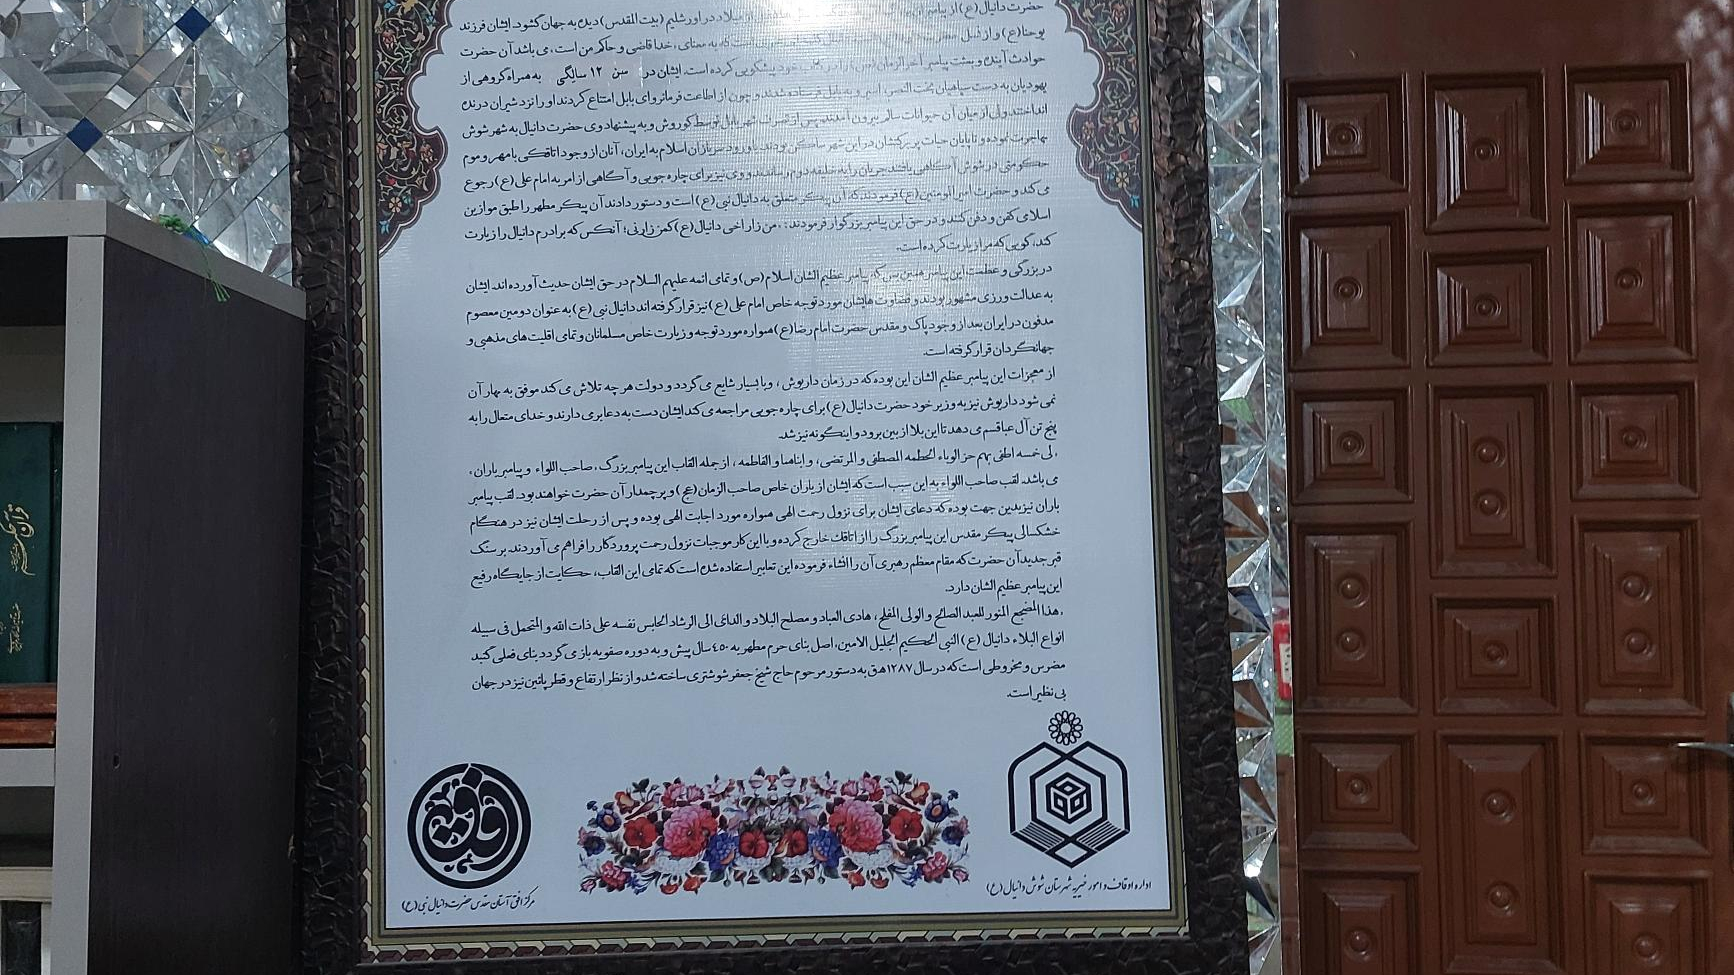 حضرت دانیال (ع) از پیامبران میلاد در اورشلیم (بیت المقدس) دیده به جهان گشود. ایشان فرزند
یوحنا (ع) و از نسل است که به معنای، خدا قاضی و حاکم من است، می باشد آن حضرت
حوادث آینده و بعثت پیامبر آخرالزمان (ص) را خود پیشگویی کرده است. ایشان در سن ۱۲ سالگی به همراه گروهی از
یهودیان به دست سپاهیان بخت النصر، اسیر و به بابل فرستاده شدند و چون از اطاعت فرمانروای بابل امتناع کردند او را نزد شیران درنده
انداختند ولی از میان آن حیوانات سالم بیرون آمدند. پس از تصرف شهر بابل توسط کوروش و به پیشنهاد وی حضرت دانیال به شهر شوش
مهاجرت نموده و تا پایان حیات پر برکتشان در این شهر ساکن بودند. با ورود سربازان اسلام به ایران، آنان از وجود اتاقکی با مهر و موم
حکومتی در شوش آگاهی یافتند جریان را به خلیفه دوم رساندند و وی نیز برای چاره جویی و آگاهی از امر به امام علی (ع) رجوع
می کند و حضرت امیرالمومنین (ع) فرمودند که این پیکر متعلق به دانیال نبی (ع) است و دستور دادند آن پیکر مطهر را طبق موازین
اسلامی کفن و دفن کنند و در حق این پیامبر بزرگوار فرمودند: من زار اخی دانیال (ع) کمن زارنی؛ آنکس که برادرم دانیال را زیارت
کند، گویی که مرا زیارت کرده است.
در بزرگی و عظمت این پیامبر همین بس که پیامبر عظیم الشان اسلام (ص) و تمامی ائمه علیهم السلام در حق ایشان حدیث آورده اند. ایشان
به عدالت ورزی مشهور بودند و قضاوت هایشان مورد توجه خاص امام علی (ع) نیز قرار گرفته اند دانیال نبی (ع) به عنوان دومین معصوم
مدفون در ایران بعد از وجود پاک و مقدس حضرت امام رضا (ع) همواره مورد توجه و زیارت خاص مسلمانان و تمامی اقلیت های مذهبی و
جهانگردان قرار گرفته است.
از معجزات این پیامبر عظیم الشان این بوده که در زمان داریوش، وبا بسیار شایع می گردد و دولت هر چه تلاش می کند موفق به مهار آن
نمی شود داریوش نیز به وزیر خود حضرت دانیال (ع) برای چاره جویی مراجعه می کند ایشان دست به دعا بری دارند و خدای متعال را به
پنج تن آل عبا قسم می دهد تا این بلا از بین برود و اینگونه نیز شد.
، لی خمسه اطفی بهم حز الوباء الحطمه المصطفی و المرتضی، و ابناهما و الفاطمه ، از جمله القاب این پیامبر بزرگ، صاحب اللواء و پیامبر باران،
می باشد. لقب صاحب اللواء به این سبب است که ایشان از یاران خاص صاحب الزمان (عج) و پرچمدار آن حضرت خواهند بود. لقب پیامبر
باران نیز بدین جهت بوده که دعای ایشان برای نزول رحمت الهی همواره مورد اجابت الهی بوده و پس از رحلت ایشان نیز در هنگام
خشکسالی پیکر مقدس این پیامبر بزرگ را از اتاقک خارج کرده و با این کار موجبات نزول رحمت پروردگار را فراهم می آوردند. بر سنگ
قبر جدید آن حضرت که مقام معظم رهبری آن را انشاء فرموده این تعابیر استفاده شده است که تمامی این القاب، حکایت از جایگاه رفیع
این پیامبر عظیم الشان دارد.
، هذا المضجع المنور للعبد الصالح و الولی المفلح، هادی العباد و مصلح البلاد و الداعی الی الرشاد الحابس نفسه علی ذات الله و المتحمل فی سبیله
انواع البلاء دانیال (ع) النبی الحکیم الجلیل الامین، اصل بنای حرم مطهر به ۴۵۰ سال پیش و به دوره صفویه باز می گردد بنای فعلی گنبد
مضرس و مخروطی است که در سال ۱۲۸۷ ه.ق به دستور مرحوم حاج شیخ جعفر شوشتری ساخته شد و از نظر ارتفاع و قطر پائین نیز در جهان
بی نظیر است.
اداره اوقاف و امور خیریه شهرستان شوش دانیال (ع)
مرکز افق آستان مقدس حضرت دانیال نبی (ع)
قرآن حکیم